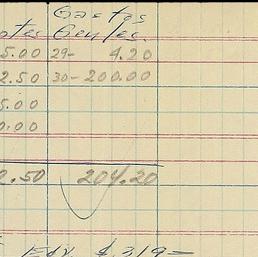 Gastos
otes Gentes.
5.00 29- 4.20
2.50 30-200.00
5.00
0.00
2.50 204.20
Edy. $ 319=